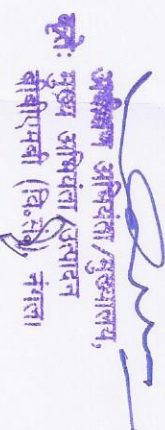 अधीक्षण अभियंता/मुख्यालय,
कृते: मुख्य अभियंता/उत्पादन
बीबीएमबी नंगल।